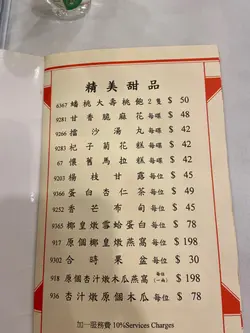 精美甜品
6367 蟠桃大壽桃飽 2隻 $ 50
9281 甘香脆麻花 每碟 $ 48
9266 擂沙湯丸 每碟 $ 42
9283 杞子菊花糕 每碟 $ 42
67 懷舊馬拉糕 每碟 $ 42
9203 楊枝甘露 每位 $ 45
9366 蛋白杏仁茶 每位 $ 49
9252 香芒布甸 每位 $ 45
9365 椰皇燉雪蛤蛋白 每位 $ 78
917 原個椰皇燉燕窩 每位 $ 198
9302 合時果盆 每位 $ 30
918 原個杏汁燉木瓜燕窩 每位 $ 198
936 杏汁燉原個木瓜 每位 $ 78
加一服務費 10%Services Charges